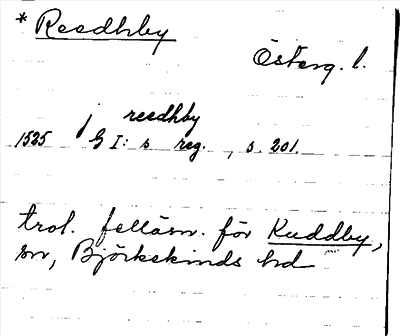 * Reedhby
Österg. l.
j reedhby
1525 G I:s reg., s. 201.
trol. felläsn. för Kuddby,
sn, Björkekinds hd